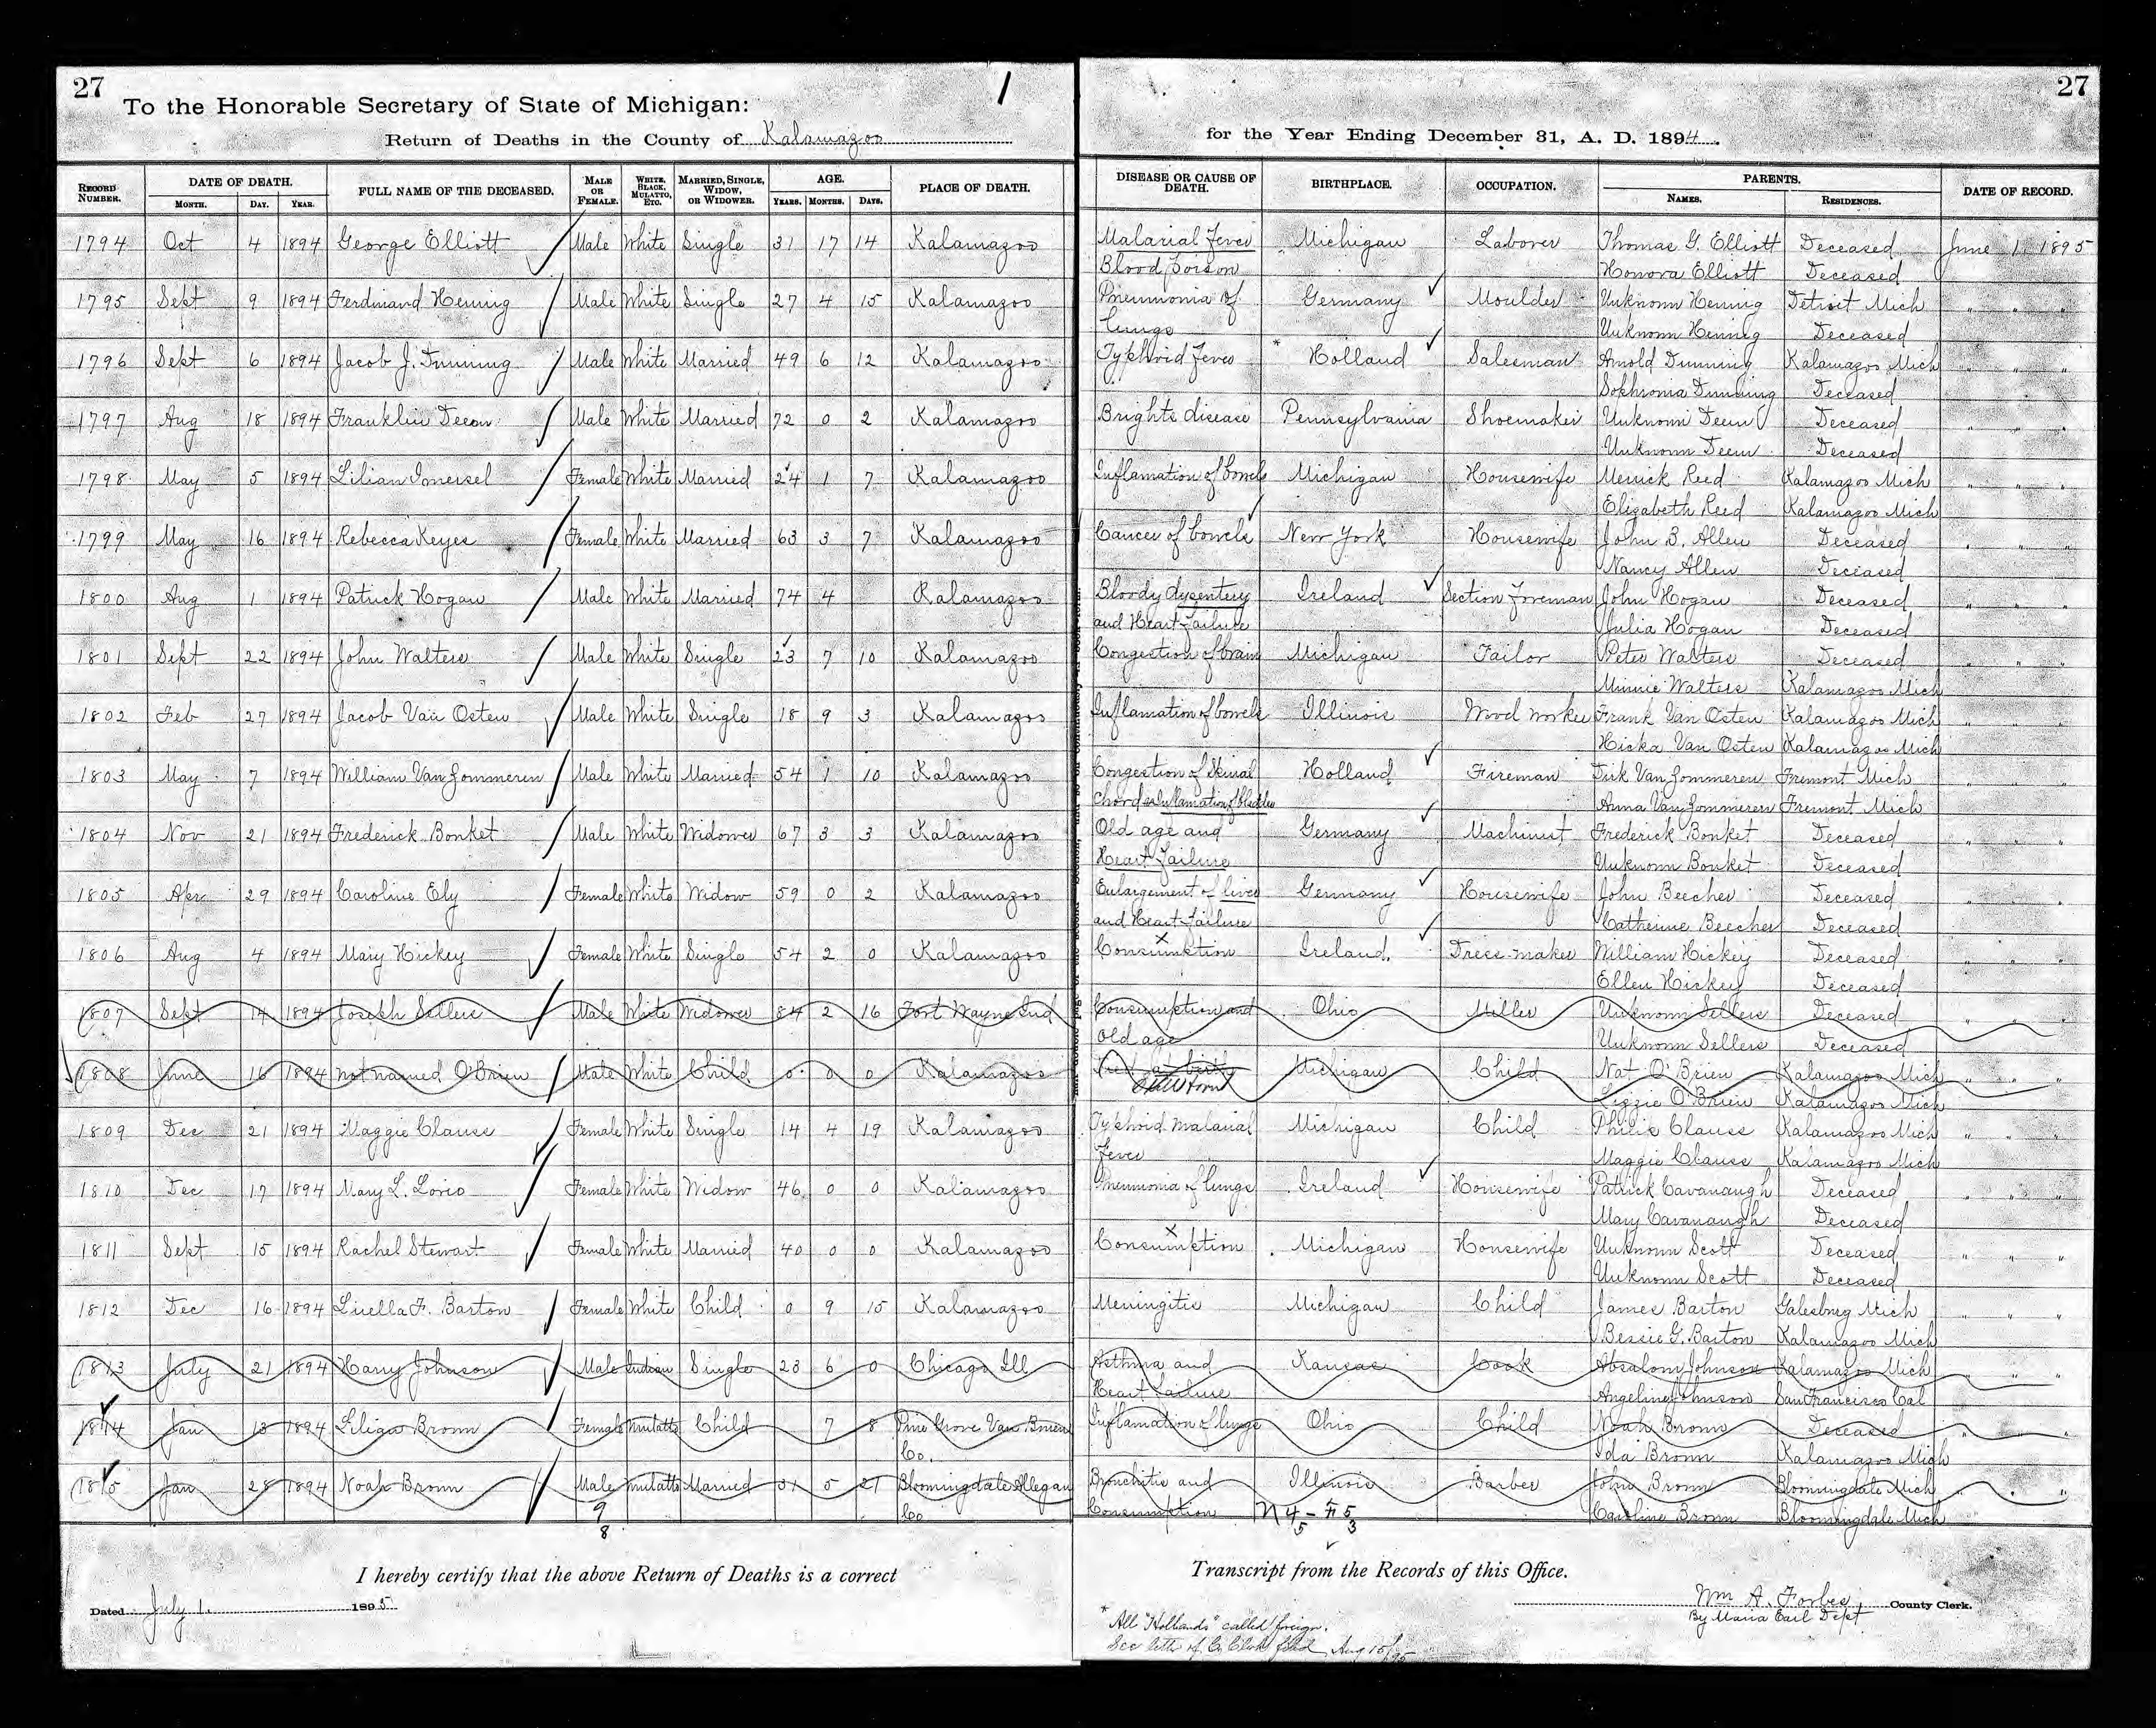 27
To the Honorable Secretary of State of Michigan:
Return of Deaths in the County of Kalamazoo
for the Year Ending December 31, A. D. 1894.
27
RECORD NUMBER. DATE OF DEATH. MONTH. DAY. YEAR. FULL NAME OF THE DECEASED. MALE OR FEMALE. WHITE, BLACK, MULATTO, ETC. MARRIED, SINGLE, WIDOW, OR WIDOWER. AGE. YEARS. MONTHS. DAYS. PLACE OF DEATH. DISEASE OR CAUSE OF DEATH. BIRTHPLACE. OCCUPATION. PARENTS. NAMES. RESIDENCES. DATE OF RECORD.
1794 Oct 4 1894 George Elliott Male White Single 31 17 14 Kalamazoo Malarial Fever Michigan Laborer Thomas G. Elliott Deceased June 1. 1895
Blood poison Honora Elliott Deceased
1795 Sept 9 1894 Ferdinand Henning Male White Single 27 4 15 Kalamazoo Pneumonia of Germany Moulder Unknown Henning Detroit Mich " " "
lungs Unknown Henning Deceased
1796 Sept 6 1894 Jacob J. Dunning Male White Married 49 6 12 Kalamazoo Typhoid Fever * Holland Salesman Arnold Dunning Kalamazoo Mich " " "
Sophronia Dunning Deceased
1797 Aug 18 1894 Franklin Male White Married 72 0 2 Kalamazoo Brights disease Pennsylvania Shoemaker Unknown Deceased " " "
Unknown Deceased
1798 May 5 1894 Lilian Male White Married 24 1 7 Kalamazoo Inflamation of bowels Michigan Housewife Merrick Reed Kalamazoo Mich " " "
Elizabeth Reed Kalamazoo Mich
1799 May 16 1894 Rebecca Keyes Female White Married 63 3 7 Kalamazoo Cancer of bowels New York Housewife John B. Allen Deceased " " "
Nancy Allen Deceased
1800 Aug 1 1894 Patrick Hogan Male White Married 74 4 Kalamazoo Bloody dysentery Ireland Section Foreman John Hogan Deceased " " "
and Heart Failure Julia Hogan Deceased
1801 Sept 22 1894 John Walters Male White Single 23 7 10 Kalamazoo Congestion of brain Michigan Tailor Peter Walters Deceased " " "
Minnie Walters Kalamazoo Mich
1802 Feb 27 1894 Jacob Van Osten Male White Single 18 9 3 Kalamazoo Inflamation of bowels Illinois Wood worker Frank Van Osten Kalamazoo Mich " " "
Van Osten Kalamazoo Mich
1803 May 7 1894 William Van Zommeren Male White Married 54 1 10 Kalamazoo Congestion of Spinal Holland Fireman Dirk Van Zommeren Fremont Mich " " "
Chord & inflamation of bladder Anna Van Zommeren Fremont Mich
1804 Nov 21 1894 Frederick Bonket Male White Widower 67 3 3 Kalamazoo Old age and Germany Machinist Frederick Bonket Deceased " " "
Heart Failure Unknown Bonket Deceased
1805 Apr 29 1894 Caroline Ely Female White Widow 59 0 2 Kalamazoo Enlargement of liver Germany Housewife John Beecher Deceased " " "
and Heart Failure Catherine Beecher Deceased
1806 Aug 4 1894 Mary Hickey Female White Single 54 2 0 Kalamazoo Consumption Ireland Dress-maker William Hickey Deceased " " "
Ellen Hickey Deceased
1807 Sept 14 1894 Joseph Sellers Male White Widower 84 2 16 Fort Wayne Ind Consumption and Ohio Miller Unknown Sellers Deceased " " "
Old age Unknown Sellers Deceased
1808 June 16 1894 not named O'Brien Male White Child 0 0 0 Kalamazoo Died at birth Michigan Child Nat O'Brien Kalamazoo Mich " " "
Still born Lizzie O'Brien Kalamazoo Mich
1809 Dec 21 1894 Maggie Clause Female White Single 14 4 19 Kalamazoo Typhoid Malarial Michigan Child Philip Clause Kalamazoo Mich " " "
Fever Maggie Clause Kalamazoo Mich
1810 Dec 17 1894 Mary L. Female White Widow 46 0 0 Kalamazoo Pneumonia of lungs Ireland Housewife Patrick Cavanaugh Deceased " " "
Mary Cavanaugh Deceased
1811 Sept 15 1894 Rachel Stewart Female White Married 40 0 0 Kalamazoo Consumption Michigan Housewife Unknown Scott Deceased " " "
Unknown Scott Deceased
1812 Dec 16 1894 Luella F. Barton Female White Child 0 9 15 Kalamazoo Meningitis Michigan Child James Barton Galesburg Mich " " "
Bessie G. Barton Kalamazoo Mich
1813 July 21 1894 Harry Johnson Male Indian Single 23 6 0 Chicago Ill Asthma and Kansas Cook Absalom Johnson Kalamazoo Mich " " "
Heart Failure Angeline Johnson San Francisco Cal
1814 Jan 13 1894 Lilian Brown Female Mulatto Child 7 8 Pine Grove Van Buren Inflamation of lungs Ohio Child Noah Brown Deceased " " "
Co. Ida Brown Kalamazoo Mich
1815 Jan 28 1894 Noah Brown Male Mulatto Married 31 5 21 Bloomingdale Allegan Bronchitis and Illinois Barber John Brown Bloomingdale Mich " " "
Co Consumption Caroline Brown Bloomingdale Mich
9
8
I hereby certify that the above Return of Deaths is a correct
Transcript from the Records of this Office.
Dated July 1. 1895
Wm A. Forbes, County Clerk.
By Maria Earl Dept
* All "Hollands" called foreign.
See of Co Clerk filed Aug 15/95